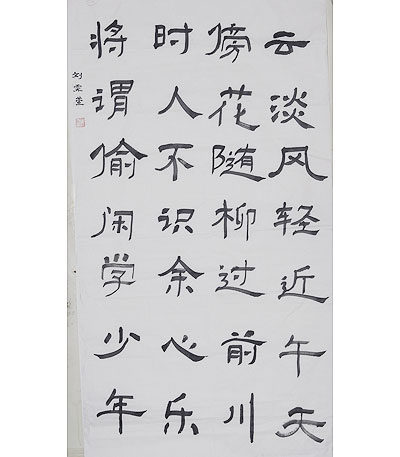 云淡风轻近午天
傍花随柳过前川
时人不识余心乐
将谓偷闲学少年
刘